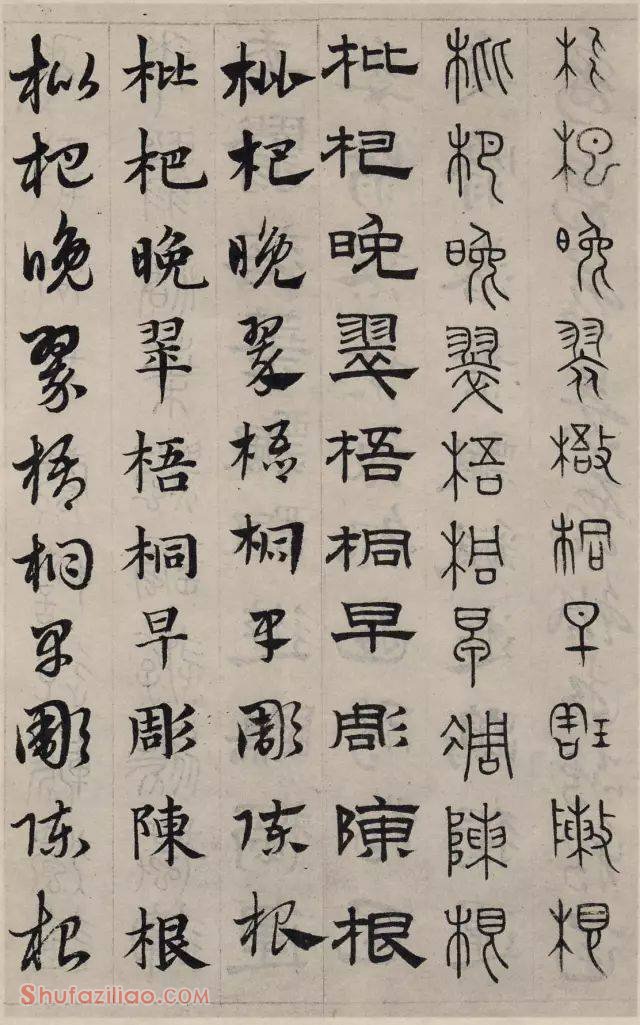 枇杷晚翠梧桐早彫陳根
枇杷晚翠梧桐早凋陳根
枇杷晚翠梧桐早彫陳根
枇杷晚翠梧桐早彫陳根
枇杷晚翠梧桐早彫陳根
枇杷晚翠梧桐早彫陳根
Shufaziliao.COM